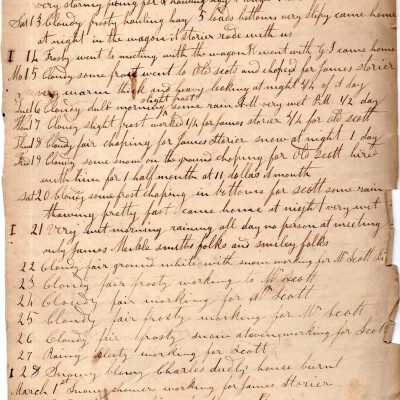 very stormy
Sat 13 Cloudy frosty hauling hay 5 loads bottoms very slipy came home
at night in the wagon J storier rode with us
I 14 Frosty went to meeting with the wagon K went with I came home
Mo 15 Cloudy some frost went to Old scots and choped for James storier
very warm thick and heavy looking at night 3/4 of a day
16 Cloudy dull morning slight frost some rain fell very wet 1/2 day
17 Cloudy slight frost worked 1/2 for James storier 1/2 for old scott
18 Cloudy fair choping for James Storier snow at night 1 day
19 Cloudy some snow on the ground choping for Old Scott hired
with him for 1 half month at 11 dollars a month
Sat 20 Cloudy some frost choping in bottoms for scott some rain
thawing pretty fast came home at night very wet
I 21 Very wet morning raining all day no person at meeting
only James Meikle smiths folks and smiley folks
22 Cloudy fair ground white with snow working for Mr Scott
23 Cloudy fair frosty working to Mr Scott
24 Cloudy fair working for Mr Scott
25 Cloudy fair frosty working for Mr Scott
26 Cloudy fair frosty snow working for Scott
27 Rainy sleety working for Scott
I 28 Snowy blowy Charles house burnt
March 1st Snowy showers working for James Storier